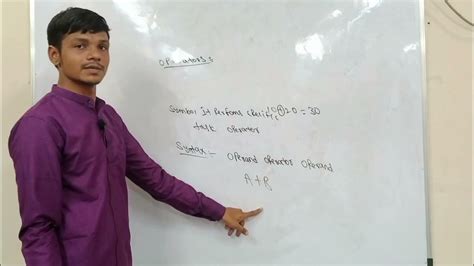 Operators:
Symbol It Perfoms 10+20=30
task operator
Syntax:- Operand operator Operand
A+B